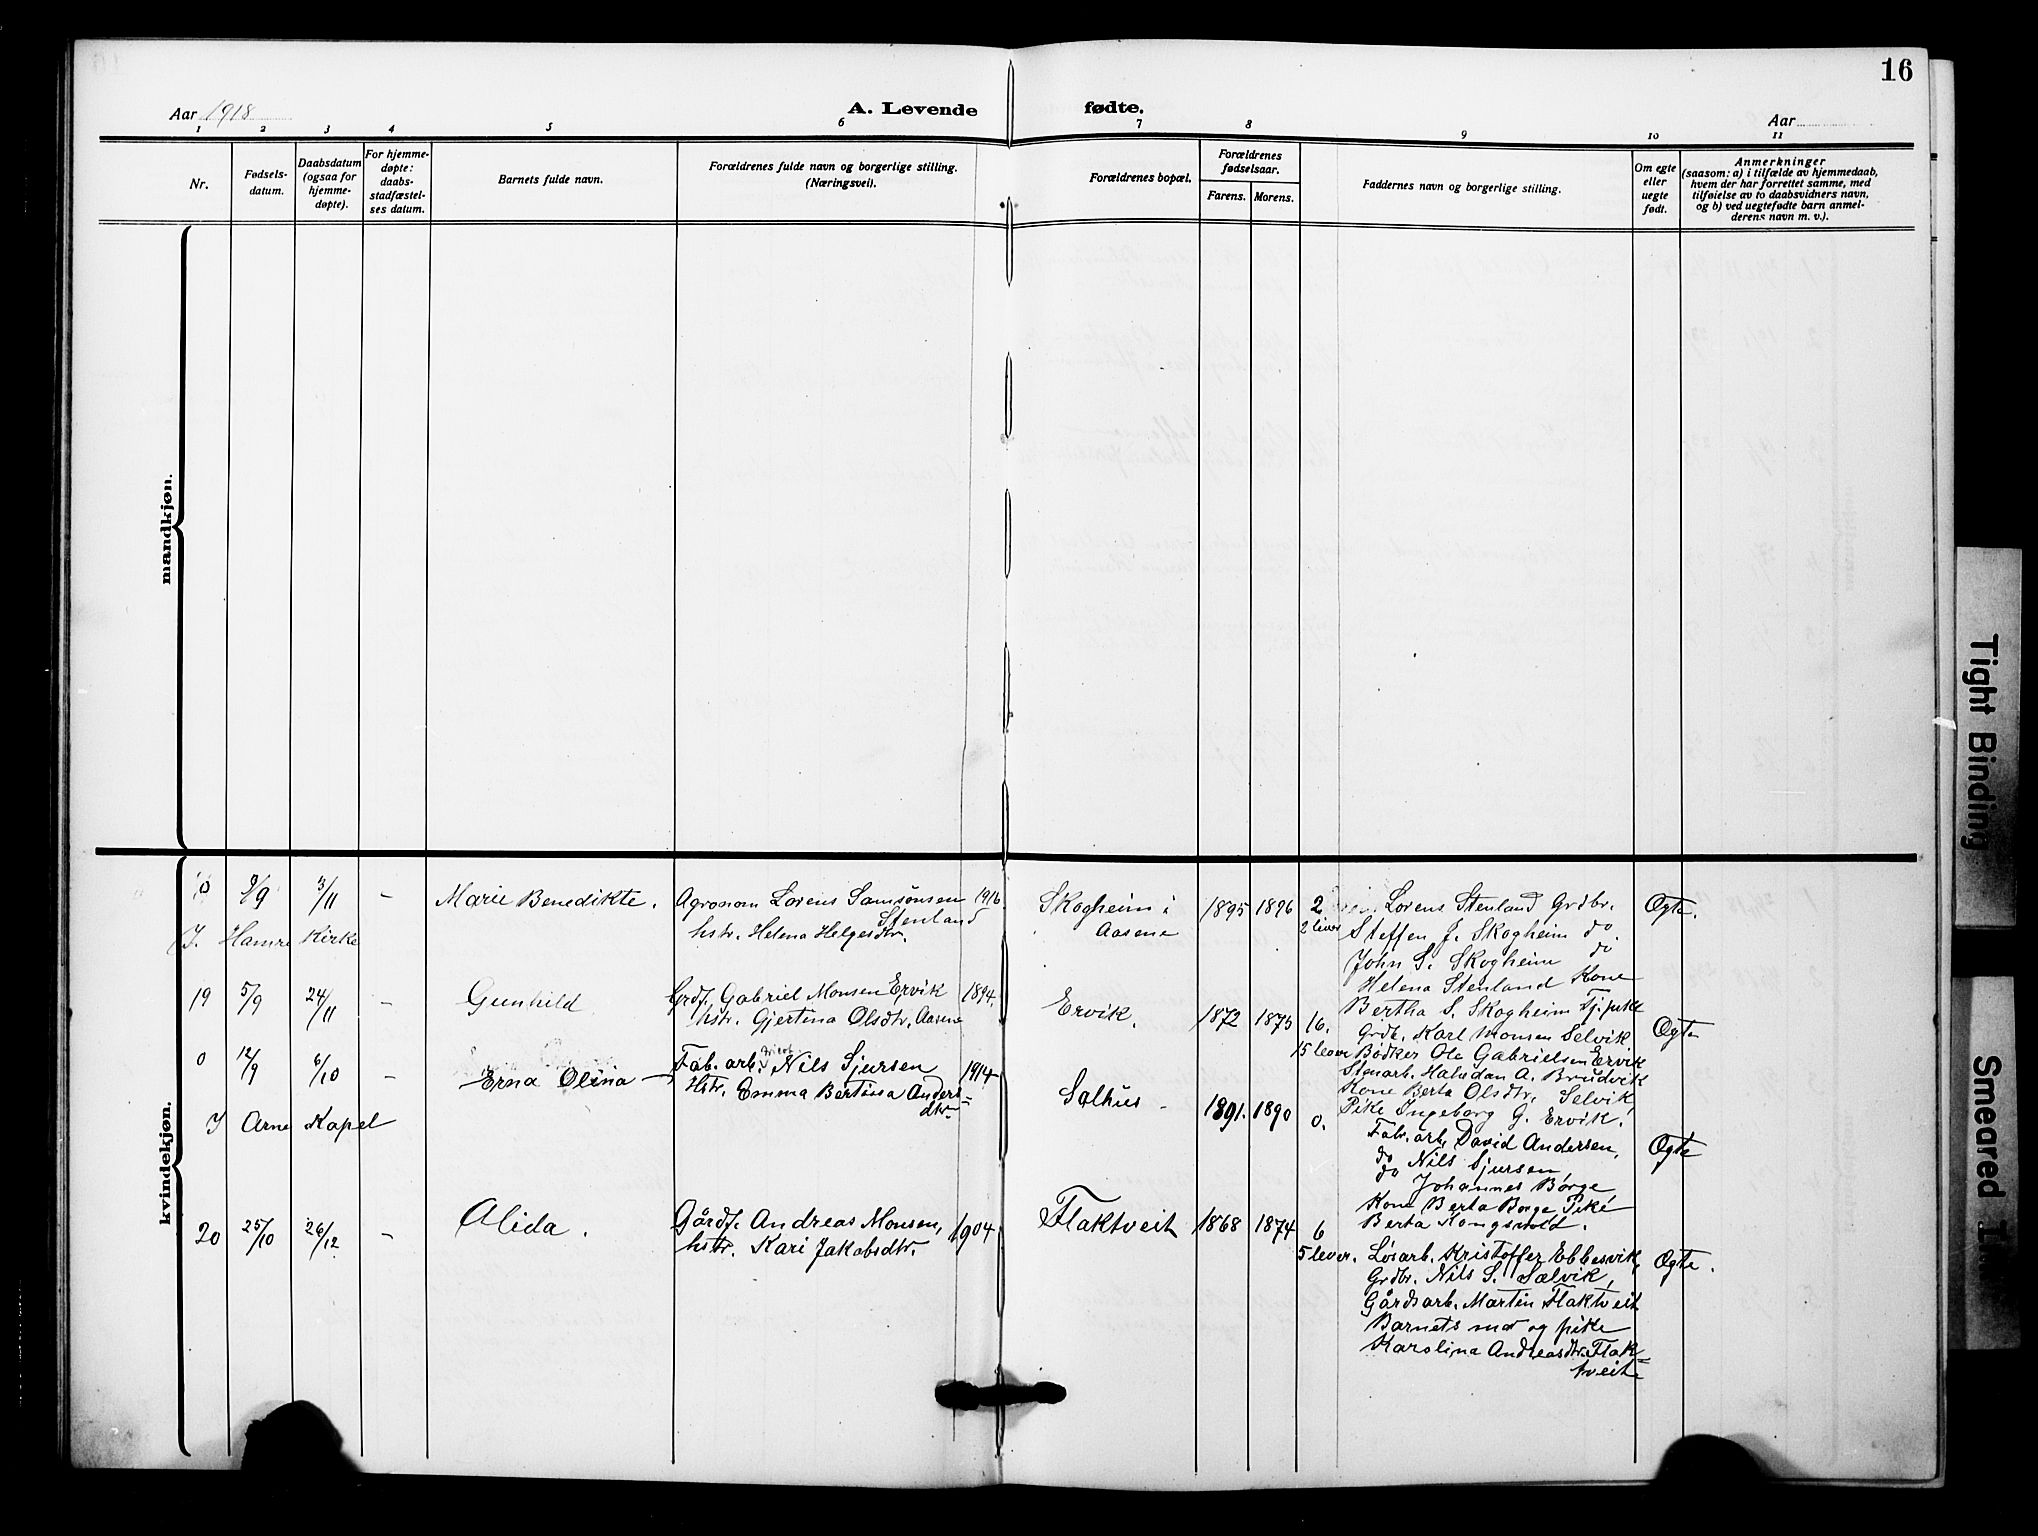 16
Aar 1918
A. Levende fødte.
Aar
1 2 3 4 5 6 7 8 9 10 11
Nr.
Fødsels-
datum.
Daabsdatum
(ogsaa for
hjemme-
døpte).
For hjemme-
døpte:
daabs-
stadfæstel-
ses datum.
Barnets fulde navn.
Forældrenes fulde navn og borgerlige stilling.
(Næringsvei).
Forældrenes bopæl.
Forældrenes
fødselsaar.
Farens. Morens.
Faddernes navn og borgerlige stilling.
Om egte
eller
uegte
født.
Anmerkninger
(saasom: a) i tilfælde av hjemmedaab,
hvem der har forrettet samme, med
tilføielse av to daabsvidners navn,
og b) ved uegtefødte barn anmel-
derens navn m. v.).
mandkjøn.
kvindekjøn.
0 9/9 3/11 - Marie Benedikte.
Agronom Lorens Samsonsen 1916
Stenland
hstr. Helena Helgesdtr.
I. Hamre Kirke
Skogheim i
Aasene
1895 1896 2
2 lever
Lorens Stenland Grdbr.
Steffen J. Skogheim do.
do
John S. Skogheim
Helena Stenland Kone
Bertha S. Skogheim Tj.pike
Ægte.
19 5/9 24/11 - Gunhild
Grdf. Gabriel Monsen Ervik 1894.
hstr. Gjertina Olsdtr. Aasene
Ervik.
1872 1875 16.
15 lever
Grdb. Karl Monsen Selvik
Bødker Ole Gabrielsen Ervik
Stenarb. Halvdan A. Brudvik
Kone Berta Olsdtr. Selvik
Pike Ingeborg G. Ervik.
Ægte
0 12/9 6/10 - Erna Olina -
Fab. arb. Nils Sjursen 1914
Hstr. Emma Bertina Anders=
dtr
I Arne Kapel
Salhus -
1891. 1890 0.
Fabr. arb. David Andersen,
do Nils Sjursen,
do Johannes Børge
Kone Berta Børge Pike
Berta Kongsvold.
Ægte
20 25/10 26/12 - Alida.
Gårdf. Andreas Monsen, 1904
hstr. Kari Jakobsdtr.
Flaktveit
1868 1874 6
5 lever.
Løsarb. Kristoffer Ebbesvik,
Grdbr. Nils S. Sælvik,
Gårdsarb. Martin Flaktveit
Barnets mor og pike
Karolina Andreasdtr. Flak=
tveit
Ægte.
Tight Binding
Smeared